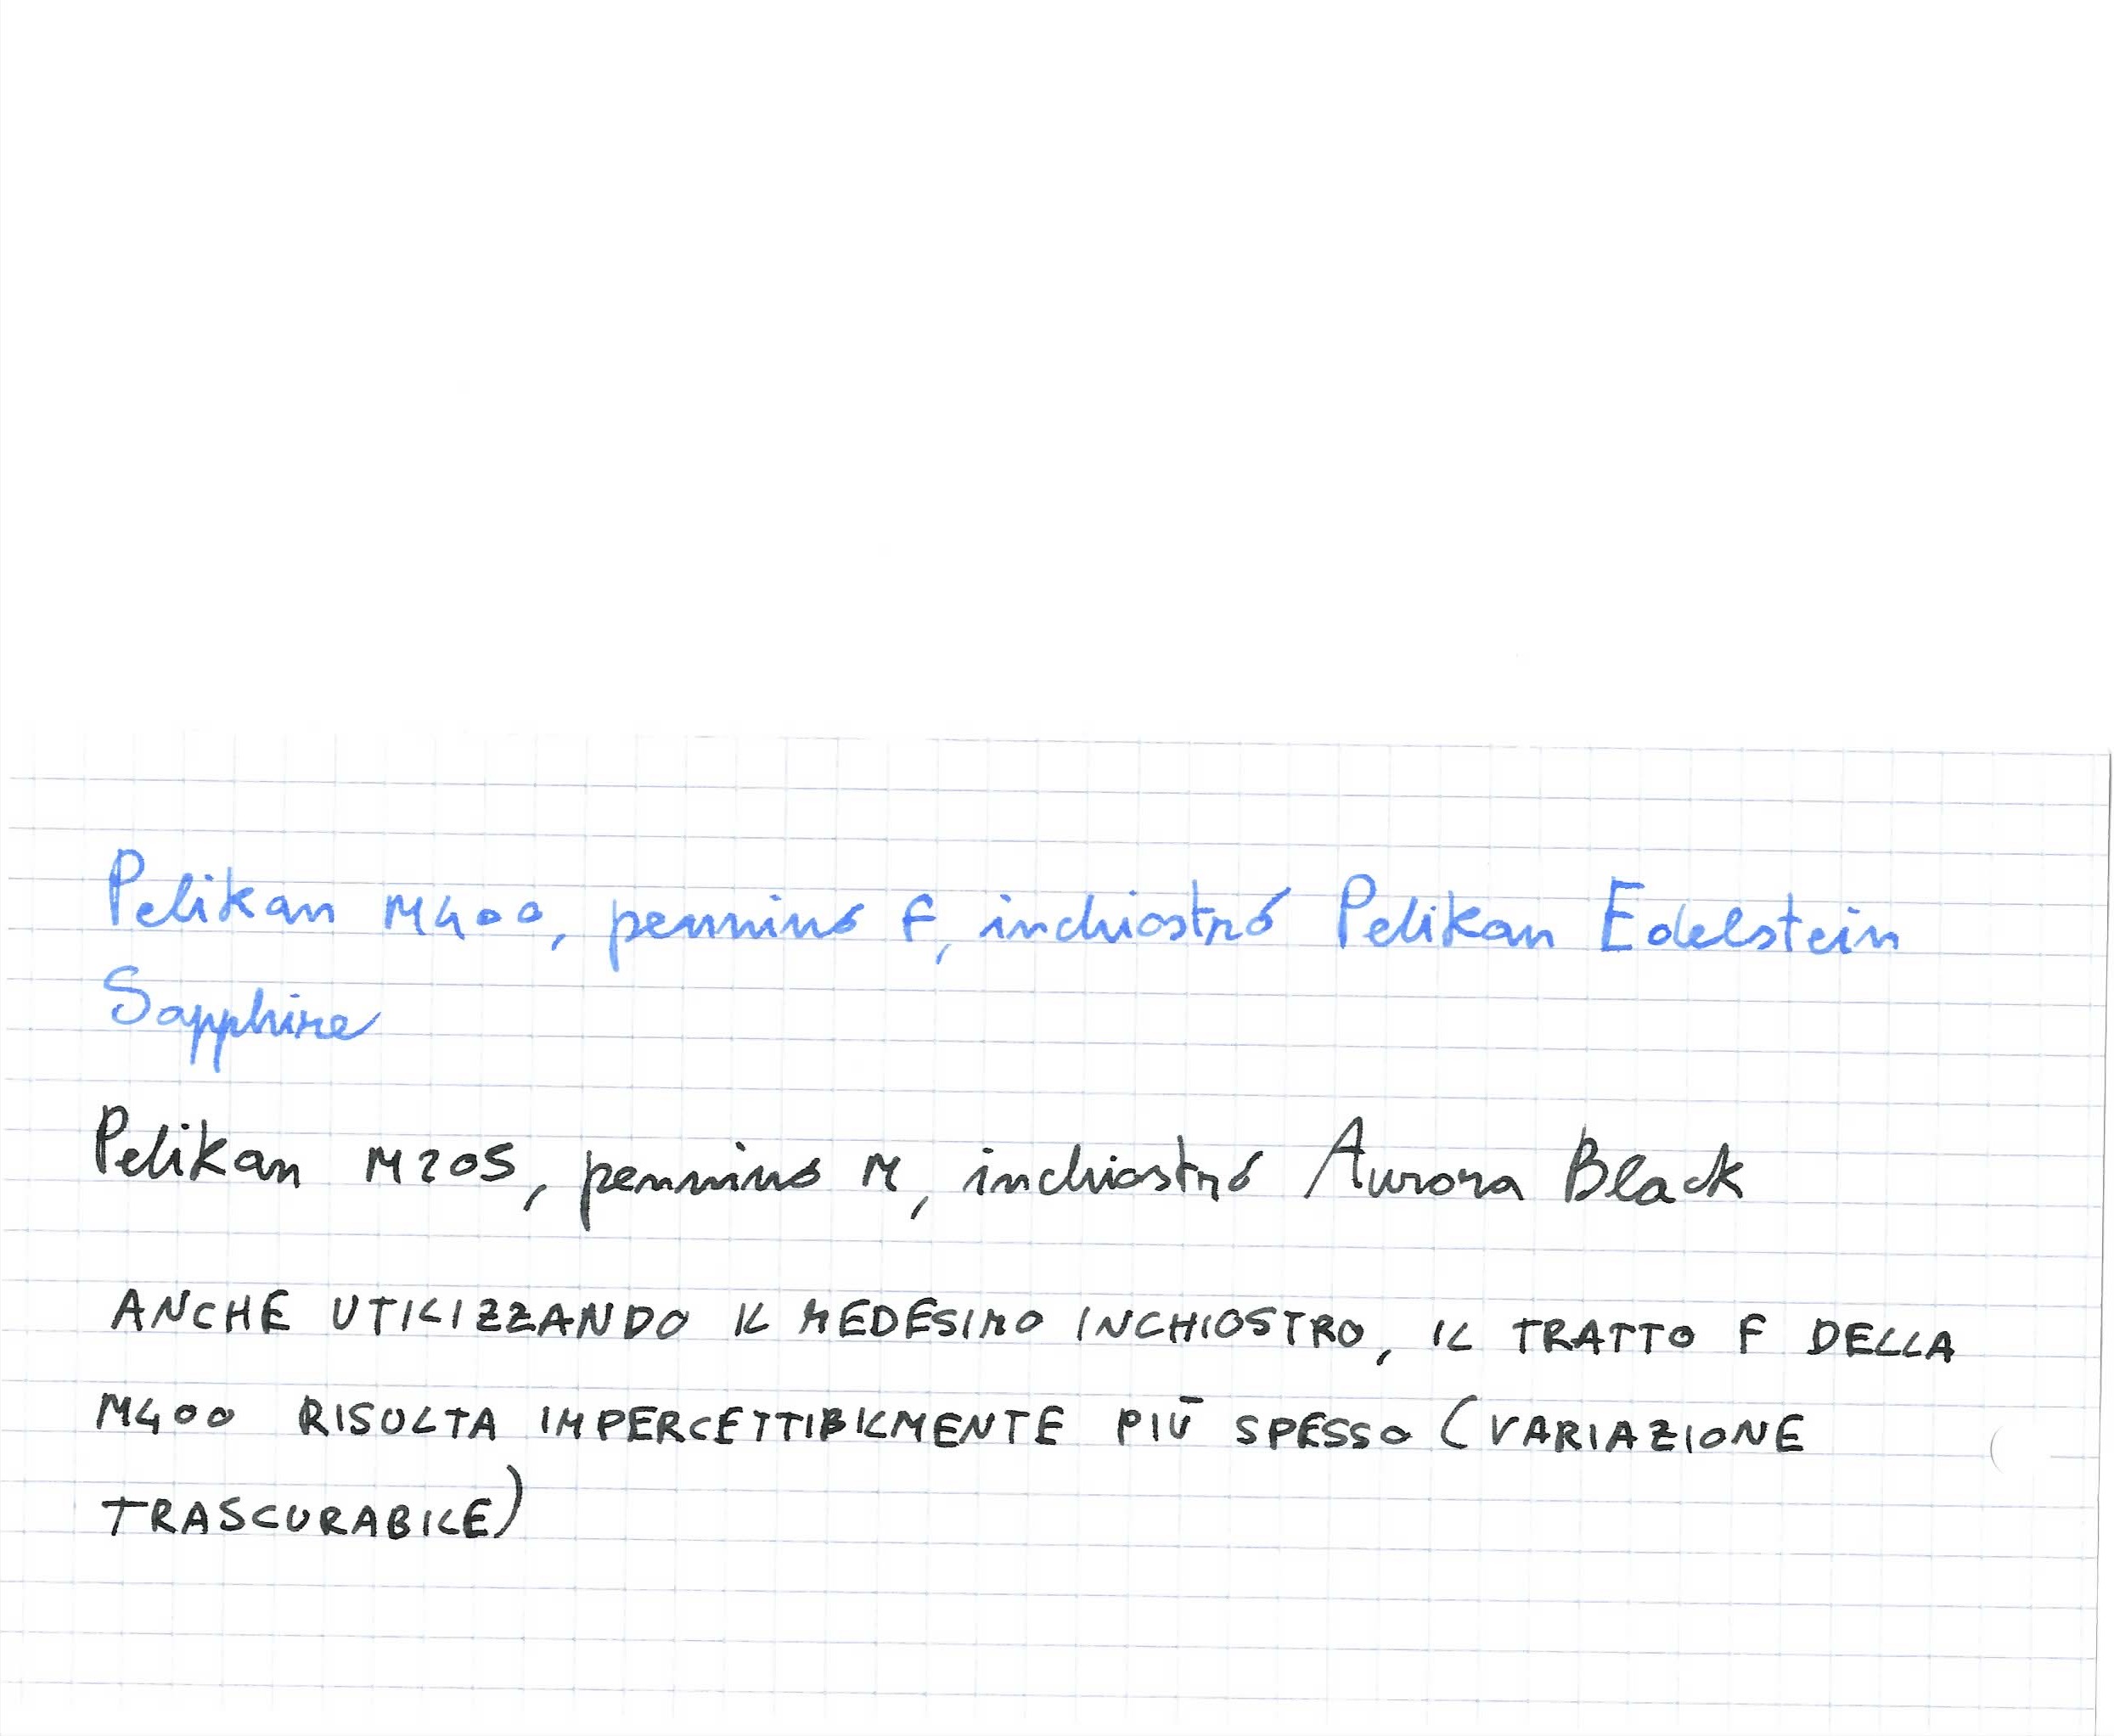 Pelikan M400, pennino F, inchiostro Pelikan Edelstein
Sapphire
Pelikan M205, pennino M, inchiostro Aurora Black
ANCHE UTILIZZANDO IL MEDESIMO INCHIOSTRO, IL TRATTO F DELLA
M400 RISULTA IMPERCETTIBILMENTE PIÙ SPESSO (VARIAZIONE
TRASCURABILE)